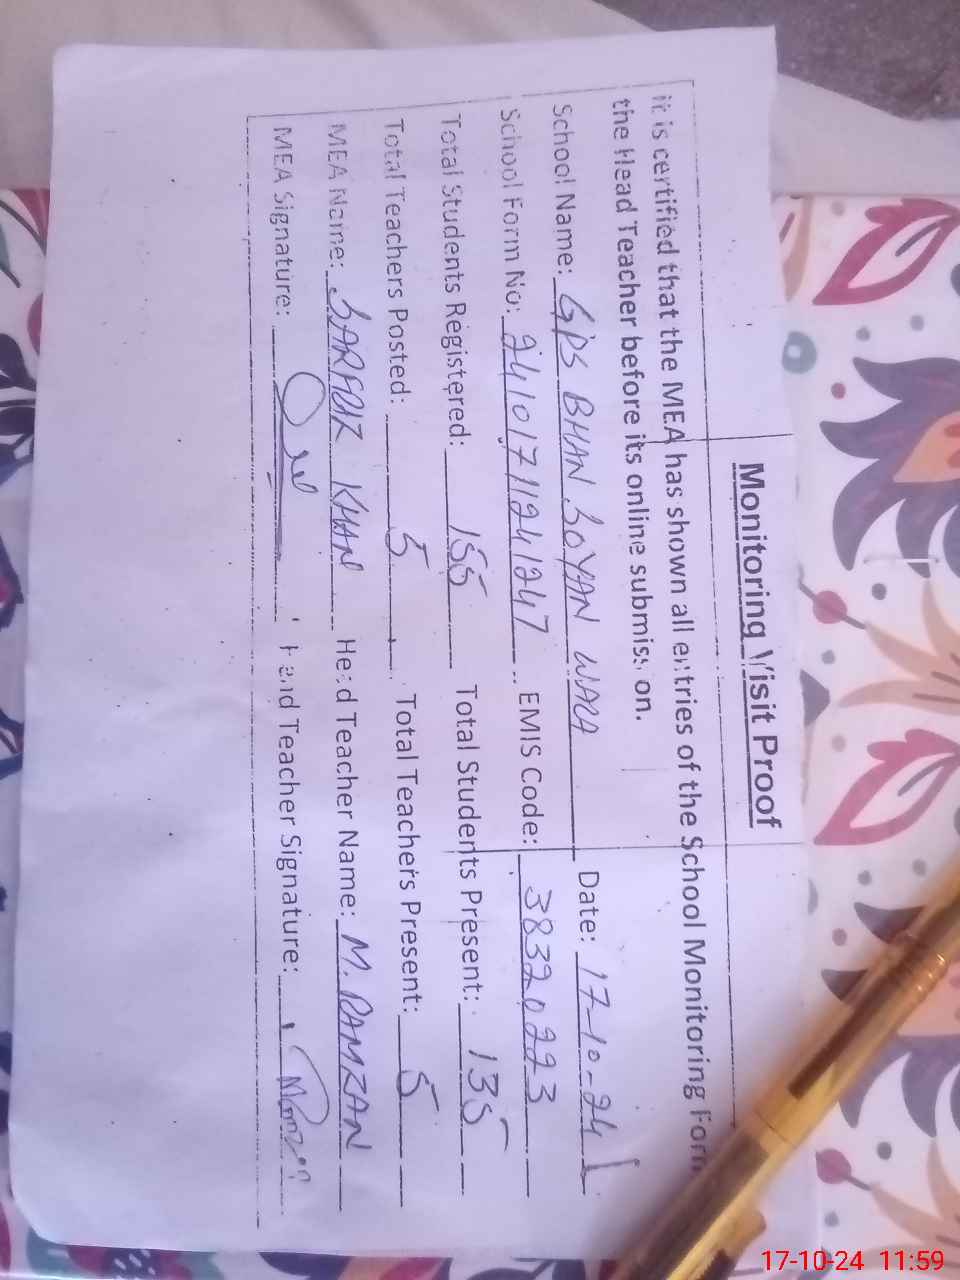 Monitoring Visit Proof
it is certified that the MEA has shown all entries of the School Monitoring Form
the Head Teacher before its online submission.
School Name: GPS BHAN SOYAN WALA Date: 17-10-24
School Form No: 24101711241247 EMIS Code: 38320223
Total Students Registered: 155 Total Students Present: 135
Total Teachers Posted: 5 Total Teachers Present: 5
MEA Name: SARFRAZ KHAN Head Teacher Name: M. RAMZAN
MEA Signature: Head Teacher Signature:
17-10-24 11:59